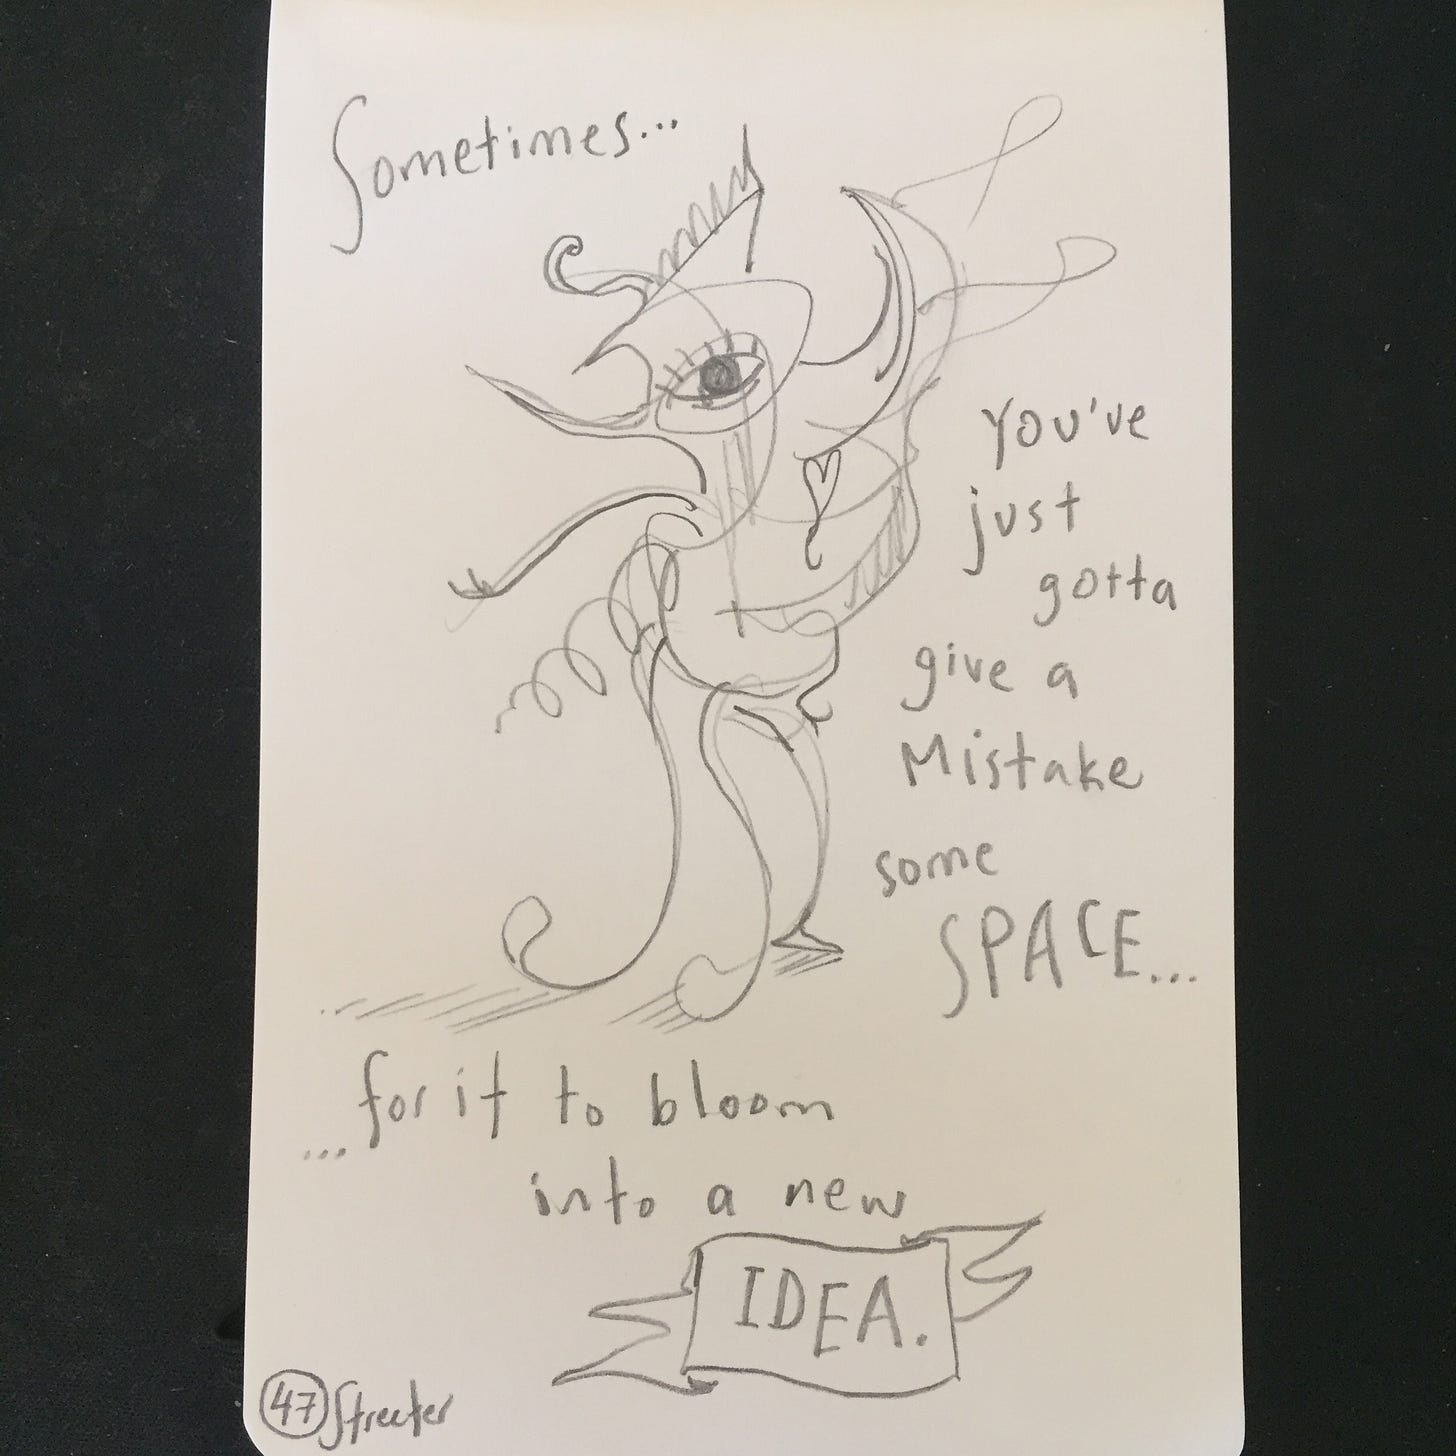 Sometimes...
You've
just
gotta
give a
Mistake
some
SPACE...
...for it to bloom
into a new
IDEA.
47 Streeter